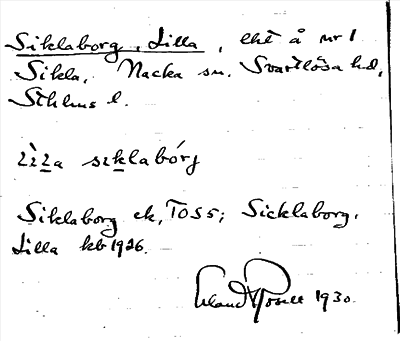 Siklaborg, Lilla, lht å nr 1
Sikla, Nacka sn. Svartlösa hd,
Sthlms l.
sɩklabórg
Siklaborg ek, TOS5; Sicklaborg,
Lilla kb 1926.
Erland Rosell 1930.